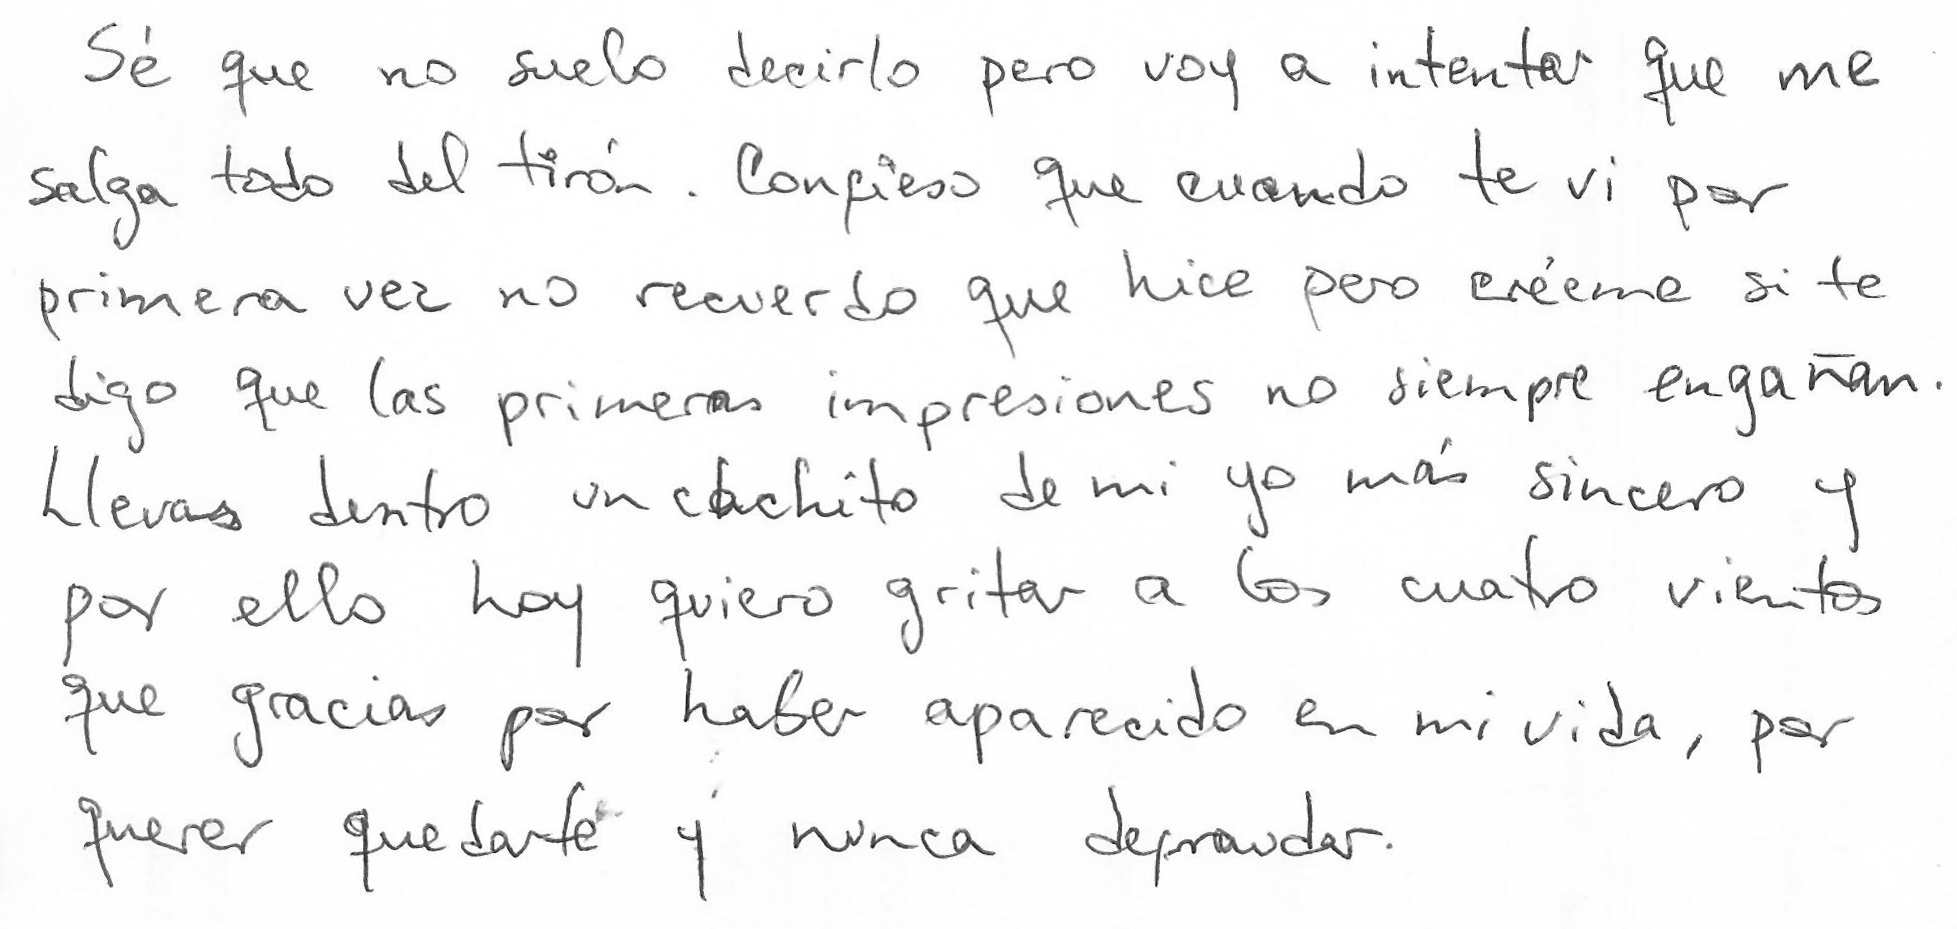 Sé que no suelo decirlo pero voy a intentar que me
salga todo del tirón. Confieso que cuando te vi por
primera vez no recuerdo que hice pero créeme si te
digo que las primeras impresiones no siempre engañan.
Llevas dentro un cachito de mi yo más sincero y
por ello hoy quiero gritar a los cuatro vientos
que gracias por haber aparecido en mi vida, por
querer quedarte y nunca defraudar.